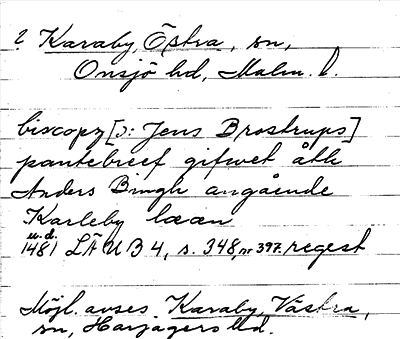 ? Karaby, Östra, sn,
Onsjö hd, Malm. l.
biscopz [ɔ: Jens Brostrups]
pantebreef gifwet åtk
Anders Bingh angående
Karleby læan
u.d.
1481 LÄUB 4, s. 348, nr 397. regest
Möjl. avses Karaby, Västra,
sn, Harjagers hd.